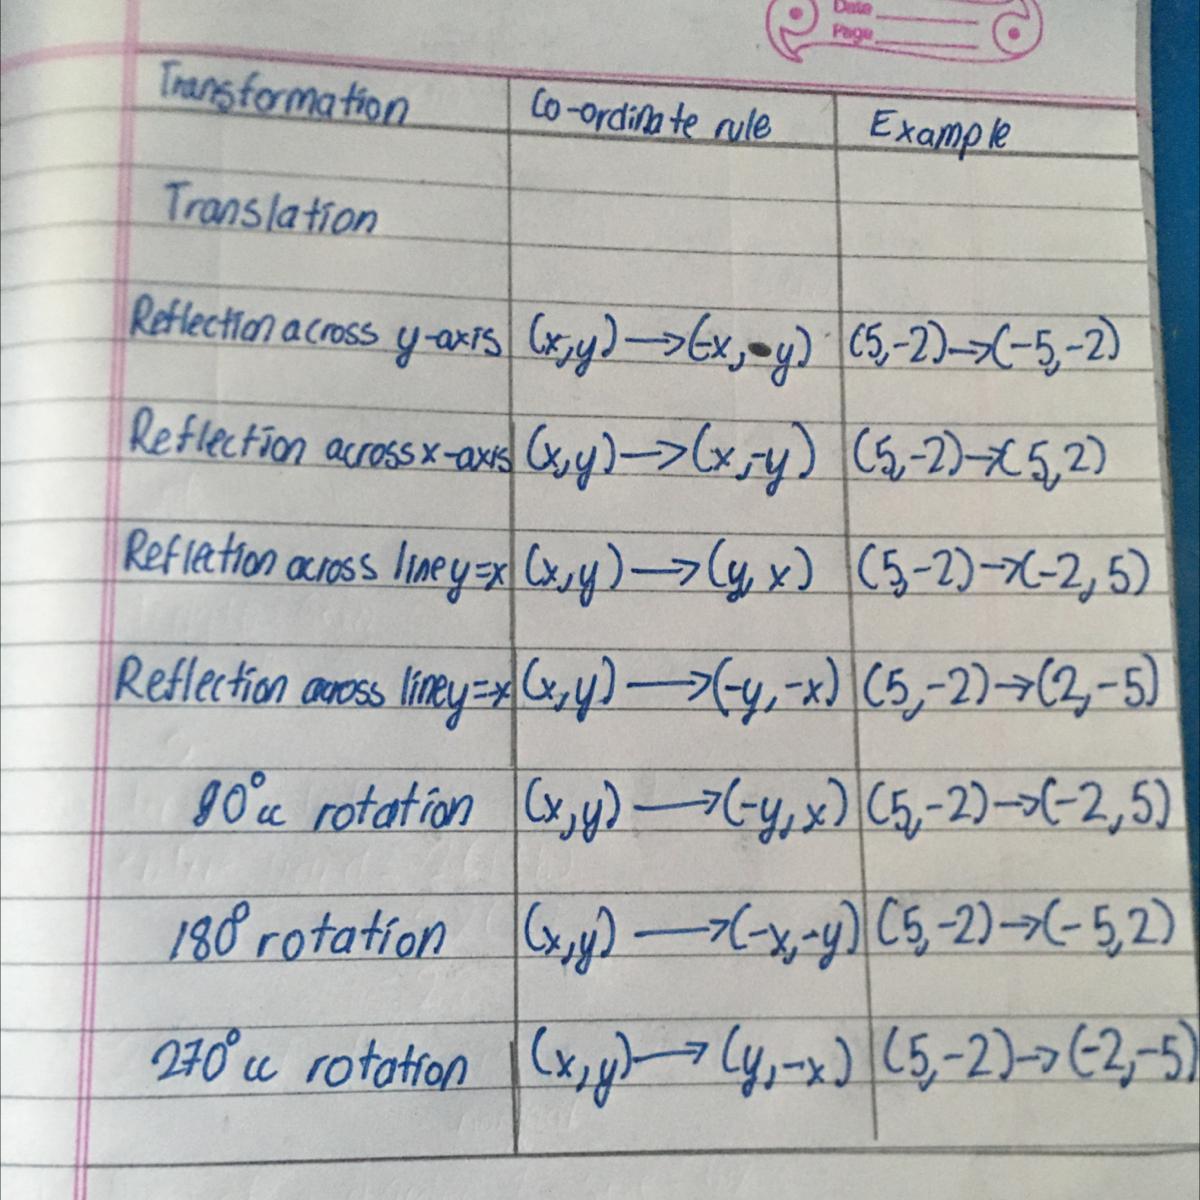 Date
Page
Transformation Co-ordinate rule Example
Translation
Reflection across y-axis (x,y)→(-x, y) (5,-2)→(-5,-2)
Reflection across x-axis (x,y)→(x,-y) (5,-2)→(5,2)
Reflection across line y=x (x,y)→(y,x) (5,-2)→(-2,5)
Reflection across line y=x (x,y)→(-y,-x) (5,-2)→(2,-5)
90°cc rotation (x,y)→(-y,x) (5,-2)→(-2,5)
180° rotation (x,y)→(-x,-y) (5,-2)→(-5,2)
270°cc rotation (x,y)→(y,-x) (5,-2)→(-2,-5)